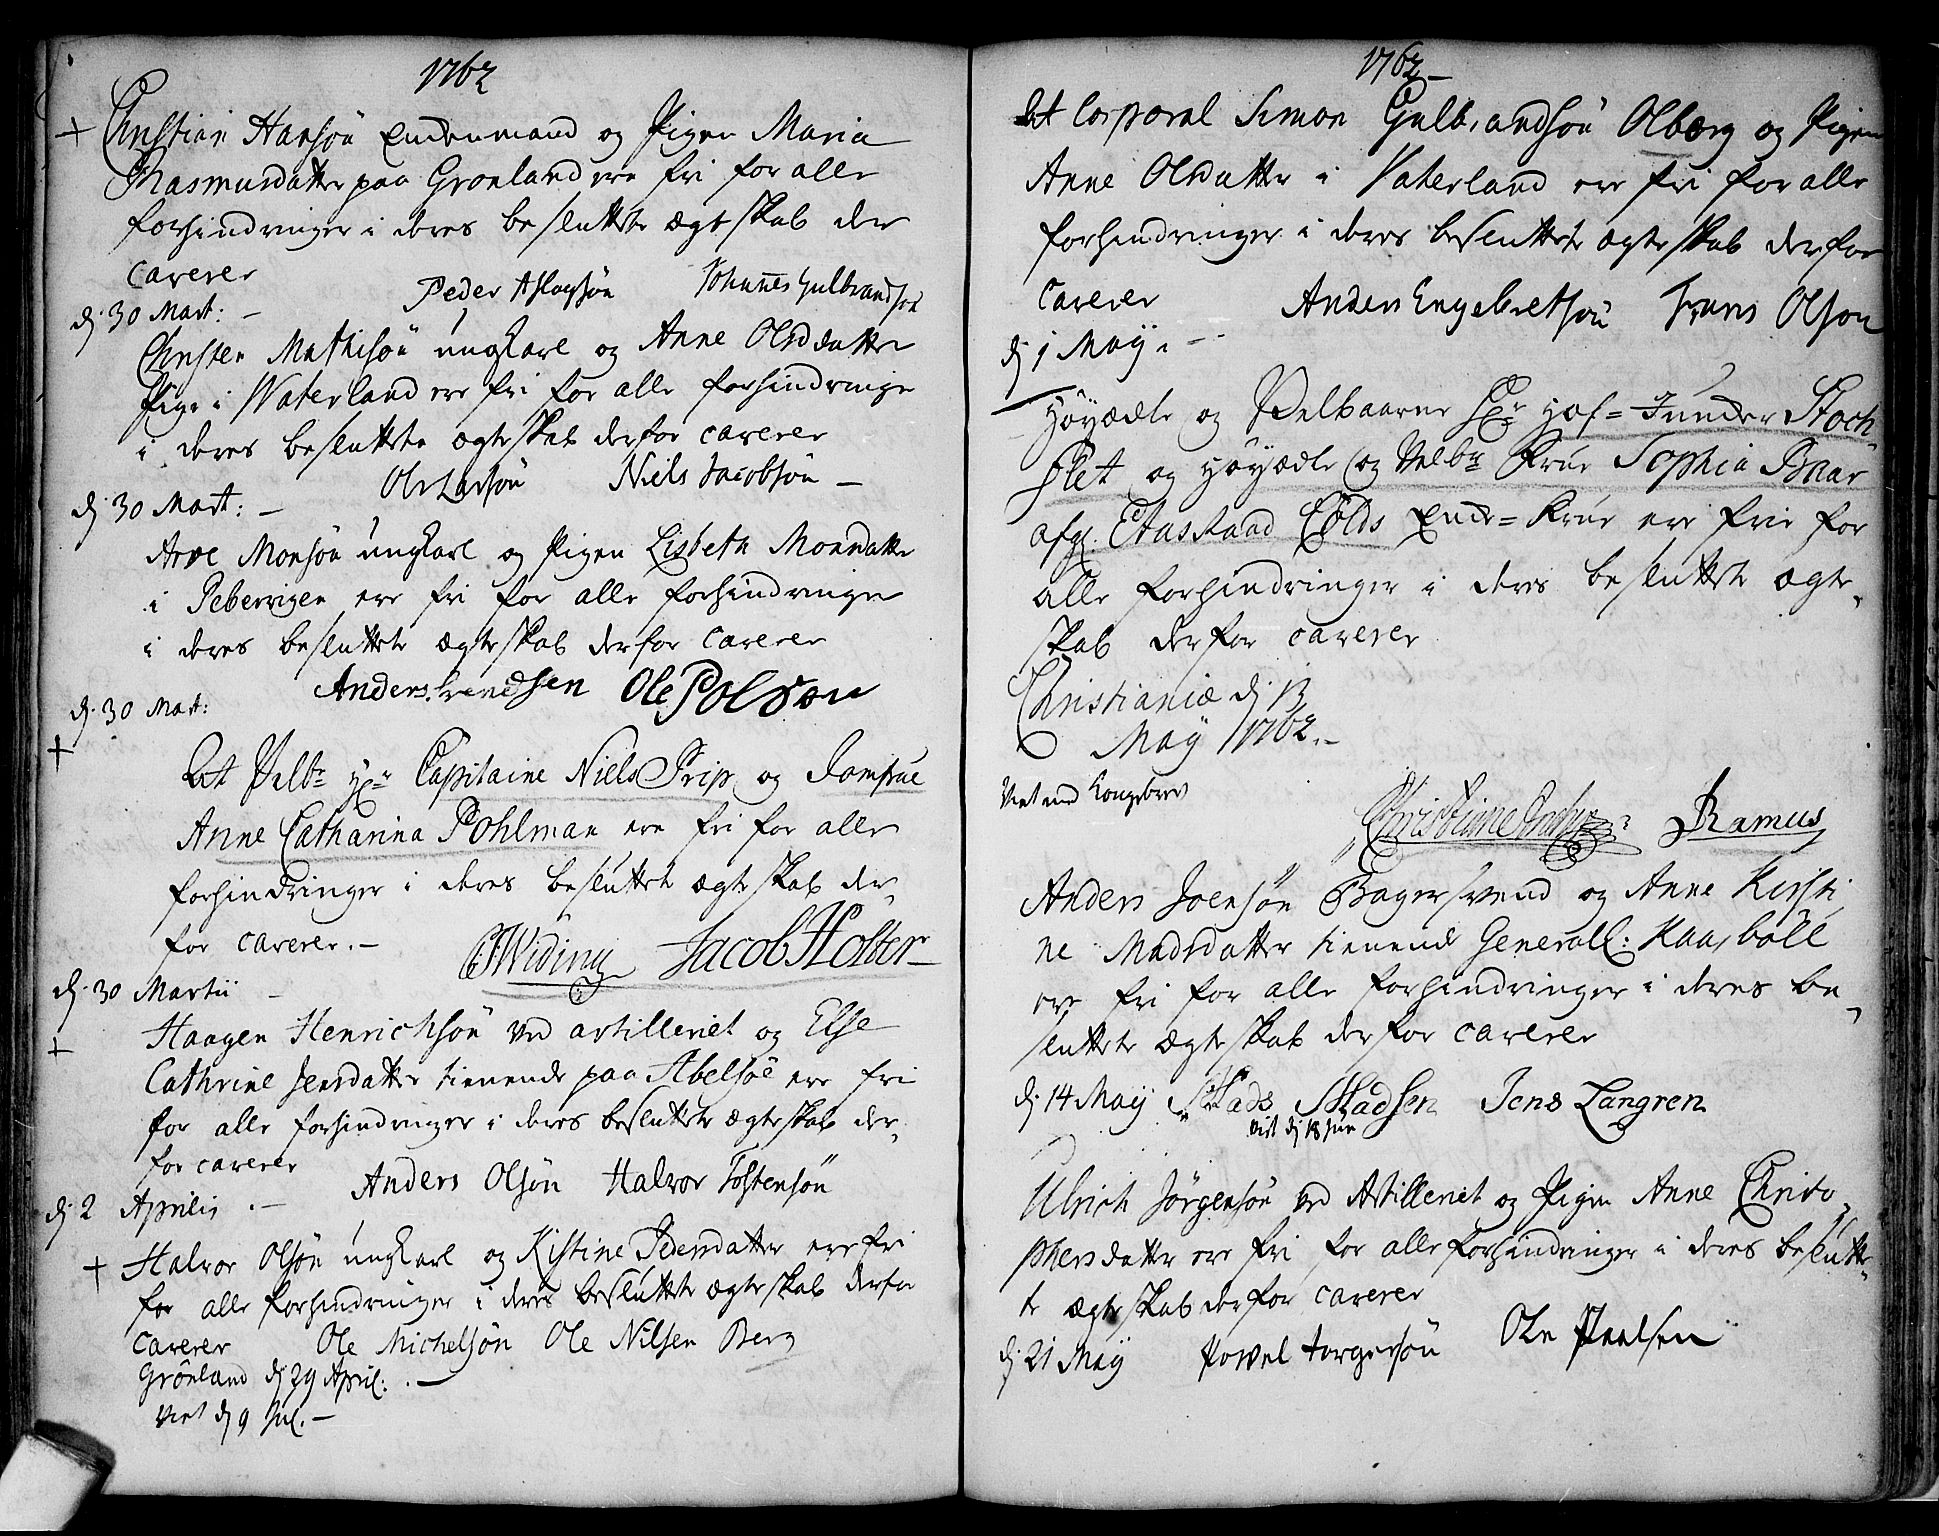 1762
+ Christian Hansøn Enckemand og Pigen Maria
Rasmusdatter paa Grønland ere fri for alle
forhindringer i deres besluttete ægteskab der
caverer Peder Aslagsøn Johannes Gulbrandsøn
dj 30 Mart: –
Christen Mathisøn ungkarl og Anne Olsdatter
Pige i Waterland ere fri for alle forhindringe
i deres besluttete ægteskab derfor caverer
Ole Larsøn Niels Jacobsøn –
dj 30 Mart: –
Arve Monsøn ungkarl og Pigen Lisbeth Monsdatter
i Pebervigen ere fri for alle forhindringer
i deres besluttete ægteskab derfor caverer
Anders Svendsen Ole Polson
dj 30 Mart:
+
At Velbr Hr Capitaine Niels Prip og Jomfrue
Anne Catharina Pohlman ere fri for alle
forhindringer i deres besluttete ægteskab der-
for caverer. – Widing Jacob Holter –
dj 30 Martii –
+ Haagen Henrichsøn ved artilleriet og Else
Cathrine Jensdatter tienende paa Abelsøe ere fri
for alle forhindringer i deres besluttete ægteskab der-
for caverer Anders Olsøn Halvor Tostensøn
dj 2 Aprilis . –
+ Halvor Olsøn ungkarl og Kistine Pedersdatter ere fri
for alle forhindringer i deres besluttete ægteskab derfor
caverer Ole Michelsøn Ole Nilsen Berg
Grønland dj 29 April: . –
viet dj 9 Jul. –
1762 –
At Corporal Simon Gulbrandsøn Olberg og Pigen
Anne Olsdatter i Vaterland ere fri for alle
forhindringer i deres besluttete ægteskab derfor
caverer Anders Engebretsøn Frans Olson
dj 1 May . –
Høyædle og Velbaarne Hr Hof-Junder Stoch-
flet og Høyædle og Velbr Frue Sophia Bnar
afg. Etastraad Colds Encke-Frue ere frie for
alle forhindringer i deres besluttete ægte-
skab derfor caverer
Christianiæ dj 13
May 1762. –
Viet med Kongebrev
Ramus
Anders Joensøn Bagersvend og Anne Kirsti
ne Madsdatter tienende Generall: Kaasbøll
ere fri for alle forhindringer i deres be-
sluttete ægteskab derfor caverer
dj 14 May Mads Madsen Jens Langren
viet dj 18 Jun
Ulrich Jørgensøn ved Artilleriet og Pigen Anne Christo-
phersdatter ere fri for alle forhindringer i deres beslutte-
te ægteskab derfor caverer
dj 21 May Povel Torgersøn Ole Paalsen